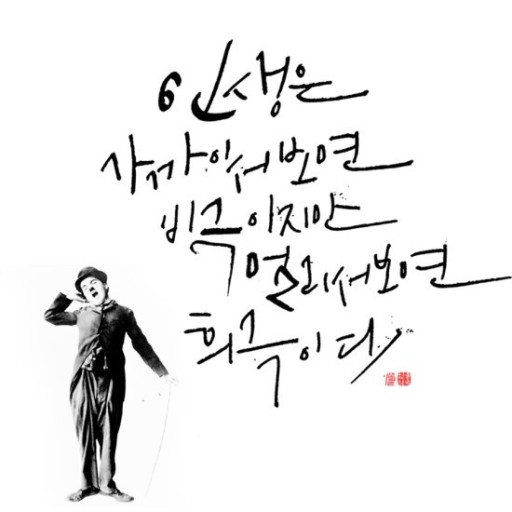 인생은
가까이서 보면
비극이지만
멀리서 보면
희극이다